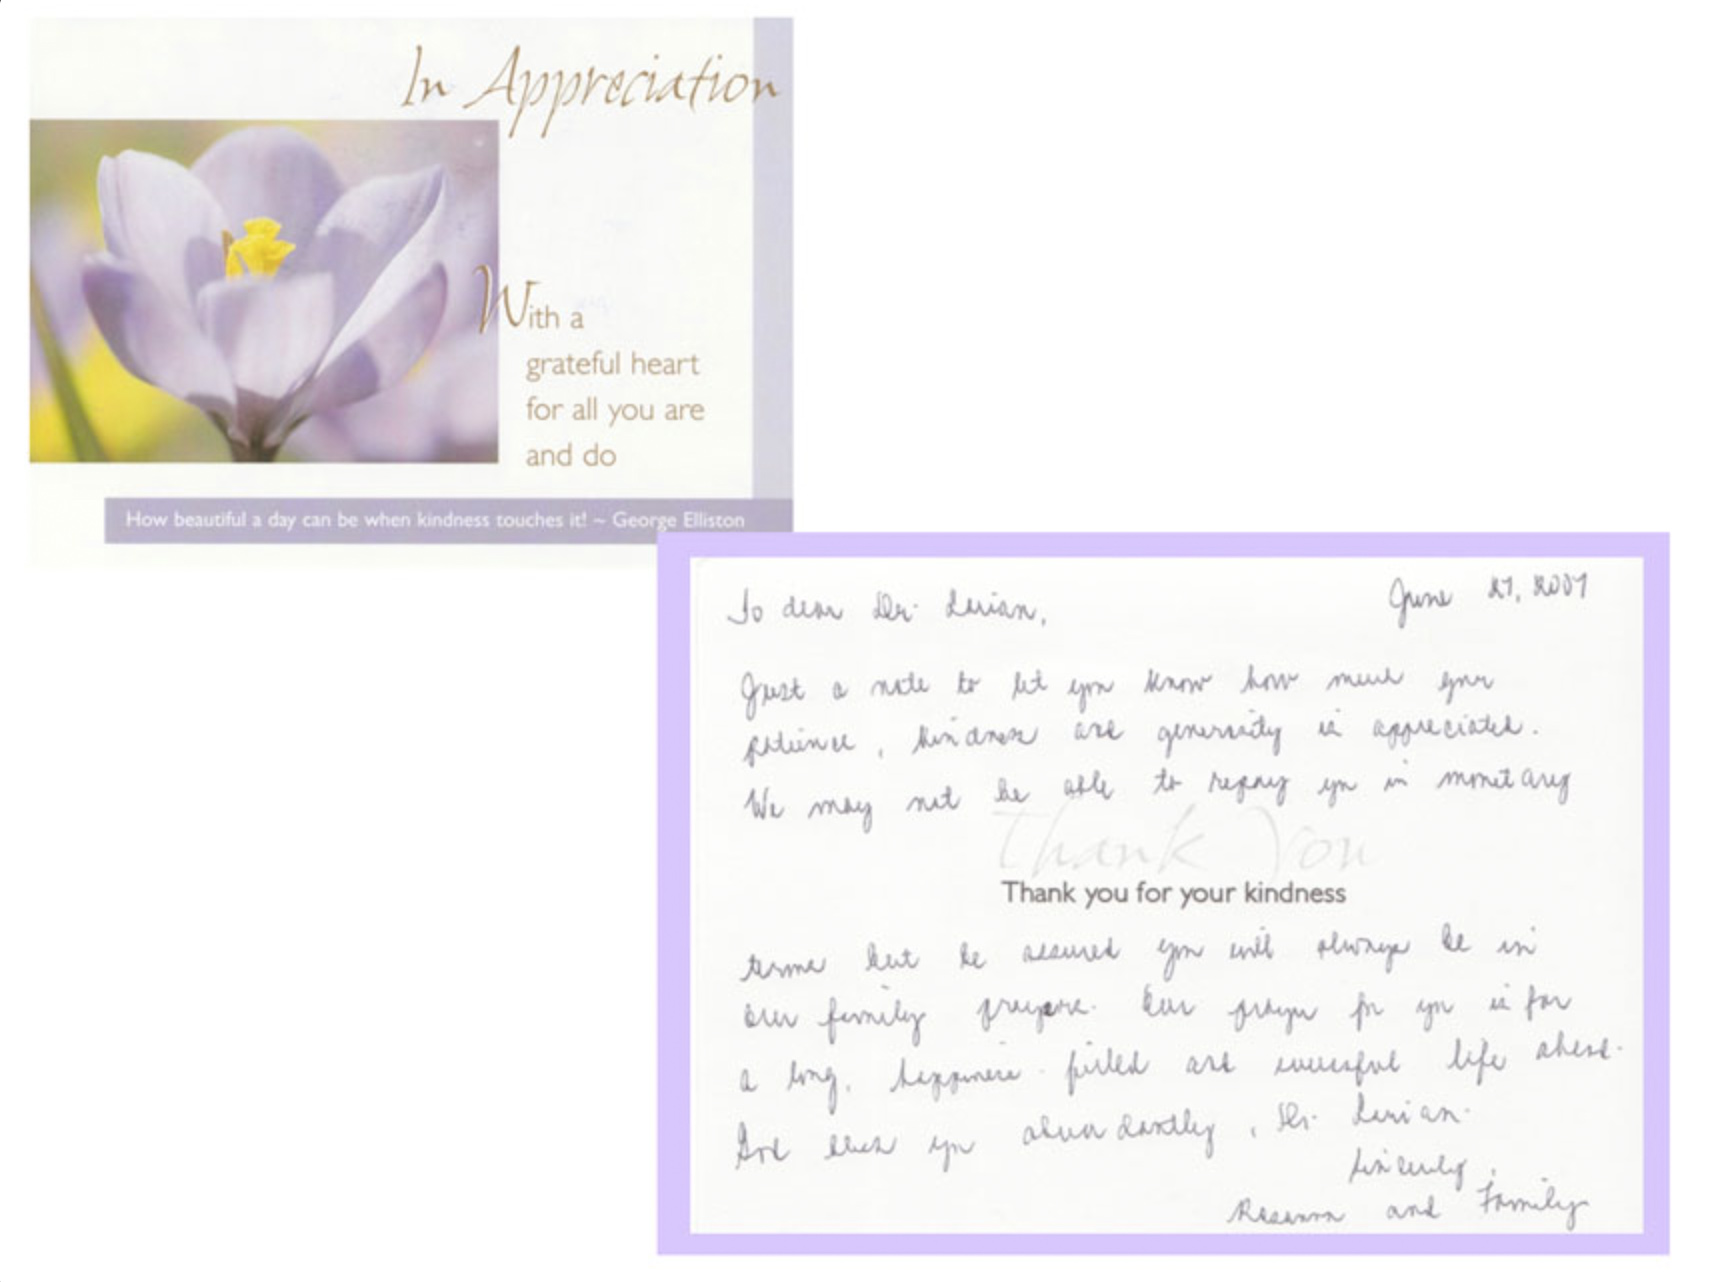 In Appreciation
With a
grateful heart
for all you are
and do
How beautiful a day can be when kindness touches it! ~ George Elliston
To dear Dr. Lerian,
June 27, 2007
Just a note to let you know how much your
patience, kindness and generosity is appreciated.
We may not be able to repay you in monetary
Thank You
Thank you for your kindness
terms but be assured you will always be in
our family prayers. Our prayer for you is for
a long, happiness-filled and successful life ahead.
God bless you abundantly, Dr. Lerian.
Sincerely,
and Family